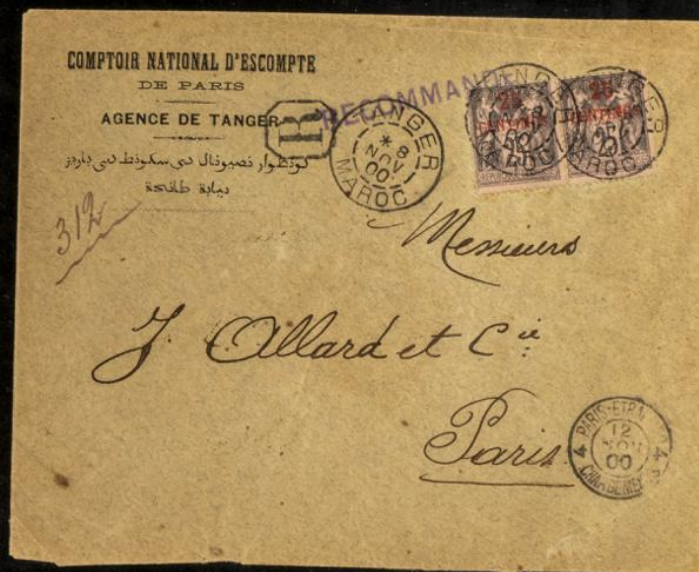 COMPTOIR NATIONAL D'ESCOMPTE
DE PARIS
AGENCE DE TANGER
كونطوار نصيونال دى سكونط دى باريز
نيابة طانجة
R
RECOMMANDÉ
TANGER
* 8
NOV
00
MAROC
25
CENTIMES
TANGER
MAROC
25
CENTIMES
TANGER
MAROC
312
Messieurs
J. Allard et Cie
Paris
PARIS-ETRANGER
12
NOV
00
4
4